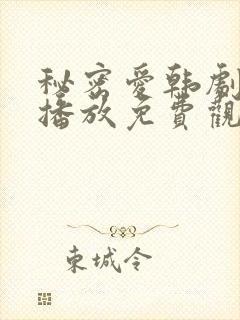 秘密愛韩劇
播放免費觀
東城令